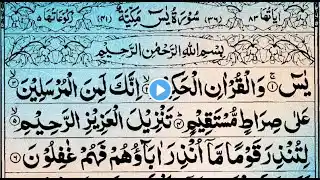 اٰيَاتُهَا ٨٣ (٣٦) سُوْرَةُ يٰسٓ مَكِّيَّةٌ (٤١) رُكُوْعَاتُهَا ٥
بِسْمِ اللّٰهِ الرَّحْمٰنِ الرَّحِيْمِ
يٰسٓ ۚ١ وَالْقُرْاٰنِ الْحَكِ ۙ٢ اِنَّكَ لَمِنَ الْمُرْسَلِيْنَ ۙ٣
عَلٰى صِرَاطٍ مُّسْتَقِيْمٍ ۭ٤ تَنْزِيْلَ الْعَزِيْزِ الرَّحِيْمِ ۙ٥
لِتُنْذِرَ قَوْمًا مَّآ اُنْذِرَ اٰبَآؤُهُمْ فَهُمْ غٰفِلُوْنَ ٦